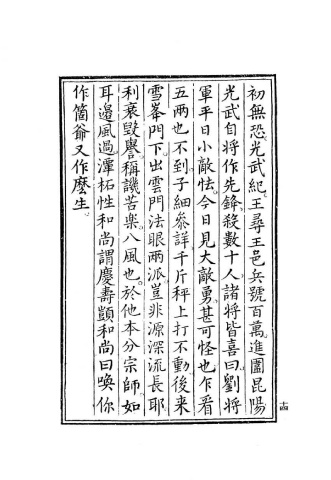 初無恐光武紀王尋王邑兵號百萬進圍昆陽
光武自將作先鋒殺數十人諸將皆喜曰劉將
軍平日小敵怯今日見大敵勇甚可怪也乍看
五兩也不到子細參詳千斤秤上打不動後來
雪峯門下出雲門法眼兩派豈非源深流長耶
利衰毀譽稱譏苦樂八風也於他本分宗師如
耳邊風過潭柘性和尚謂慶壽顗和尚曰喚你
作箇爺又作麼生
十四